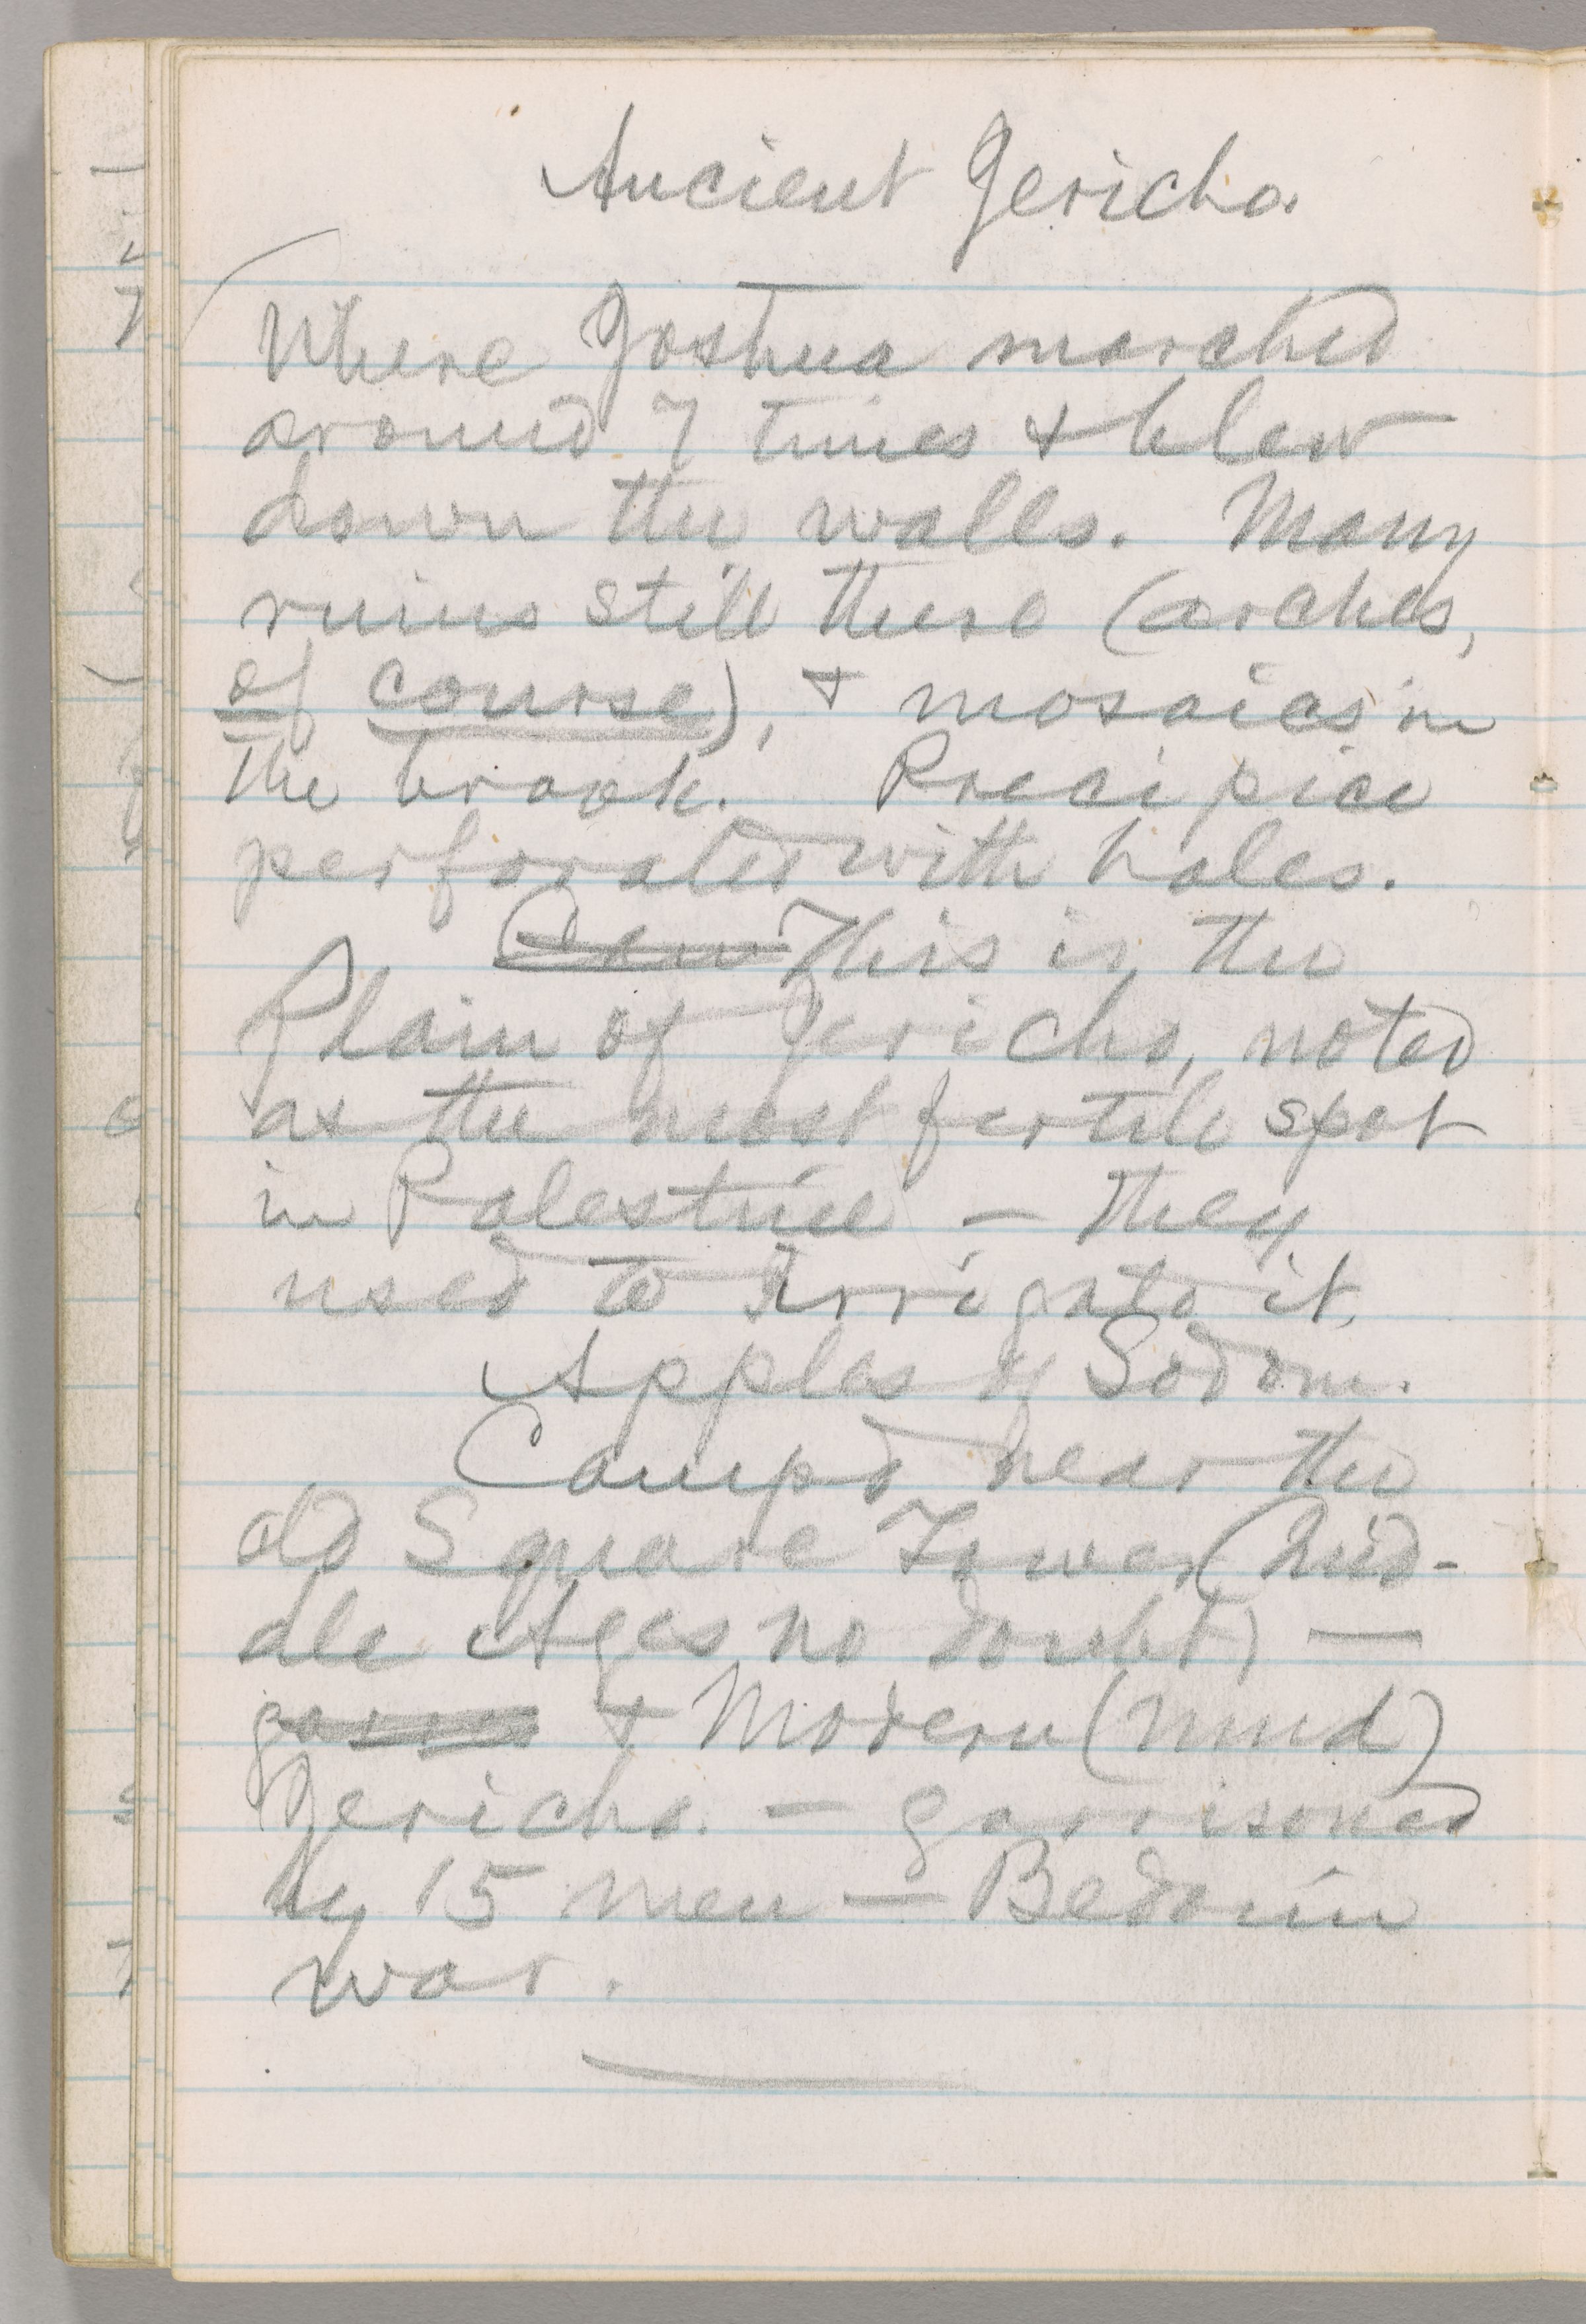 Ancient Jericho.
Where Joshua marched
around 7 times & blew
down the walls. Many
ruins still there (arches,
of course), & mosaics in
the brook. Precipice
perforated with holes.
This is the
Plain of Jericho, noted
as the most fertile spot
in Palestine — they
used to irrigate it.
Apples of Sodom.
Camp'd near the
old Square Tower (Mid-
dle Ages no doubt) —
& Modern (mud)
Jericho. — garrisoned
by 15 men — Bedouin
war.